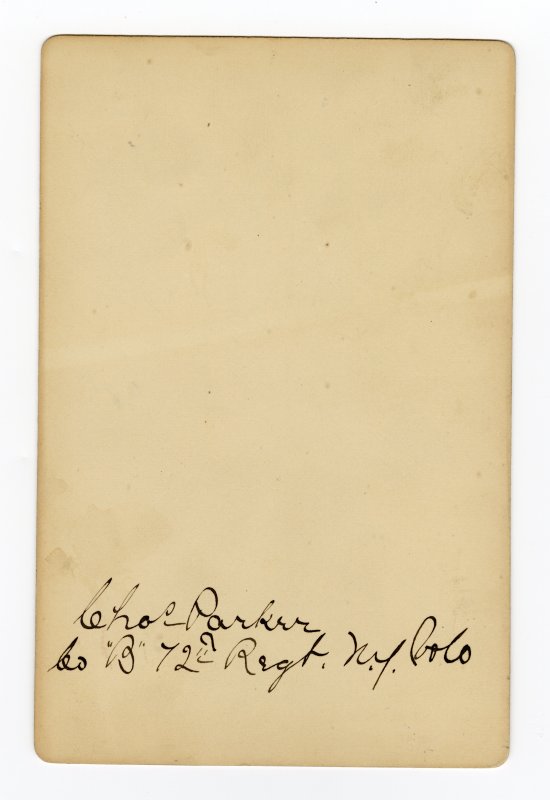 Chas Parker
Co "B" 72d Regt. N.Y. Vols